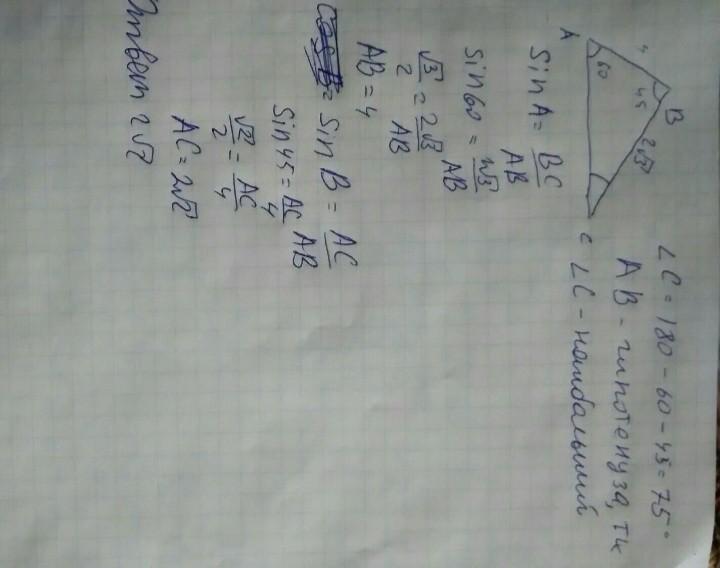 ∠C = 180 - 60 - 45 = 75°
AB - гипотенуза, тк
∠C - наибольший
A
60
4
B
45
2√3
C
Sin A = BC/AB
Sin 60 = 2√3/AB
√3/2 = 2√3/AB
AB = 4
Sin B = AC/AB
Sin 45 = AC/4
√2/2 = AC/4
AC = 2√2
Ответ 2√2